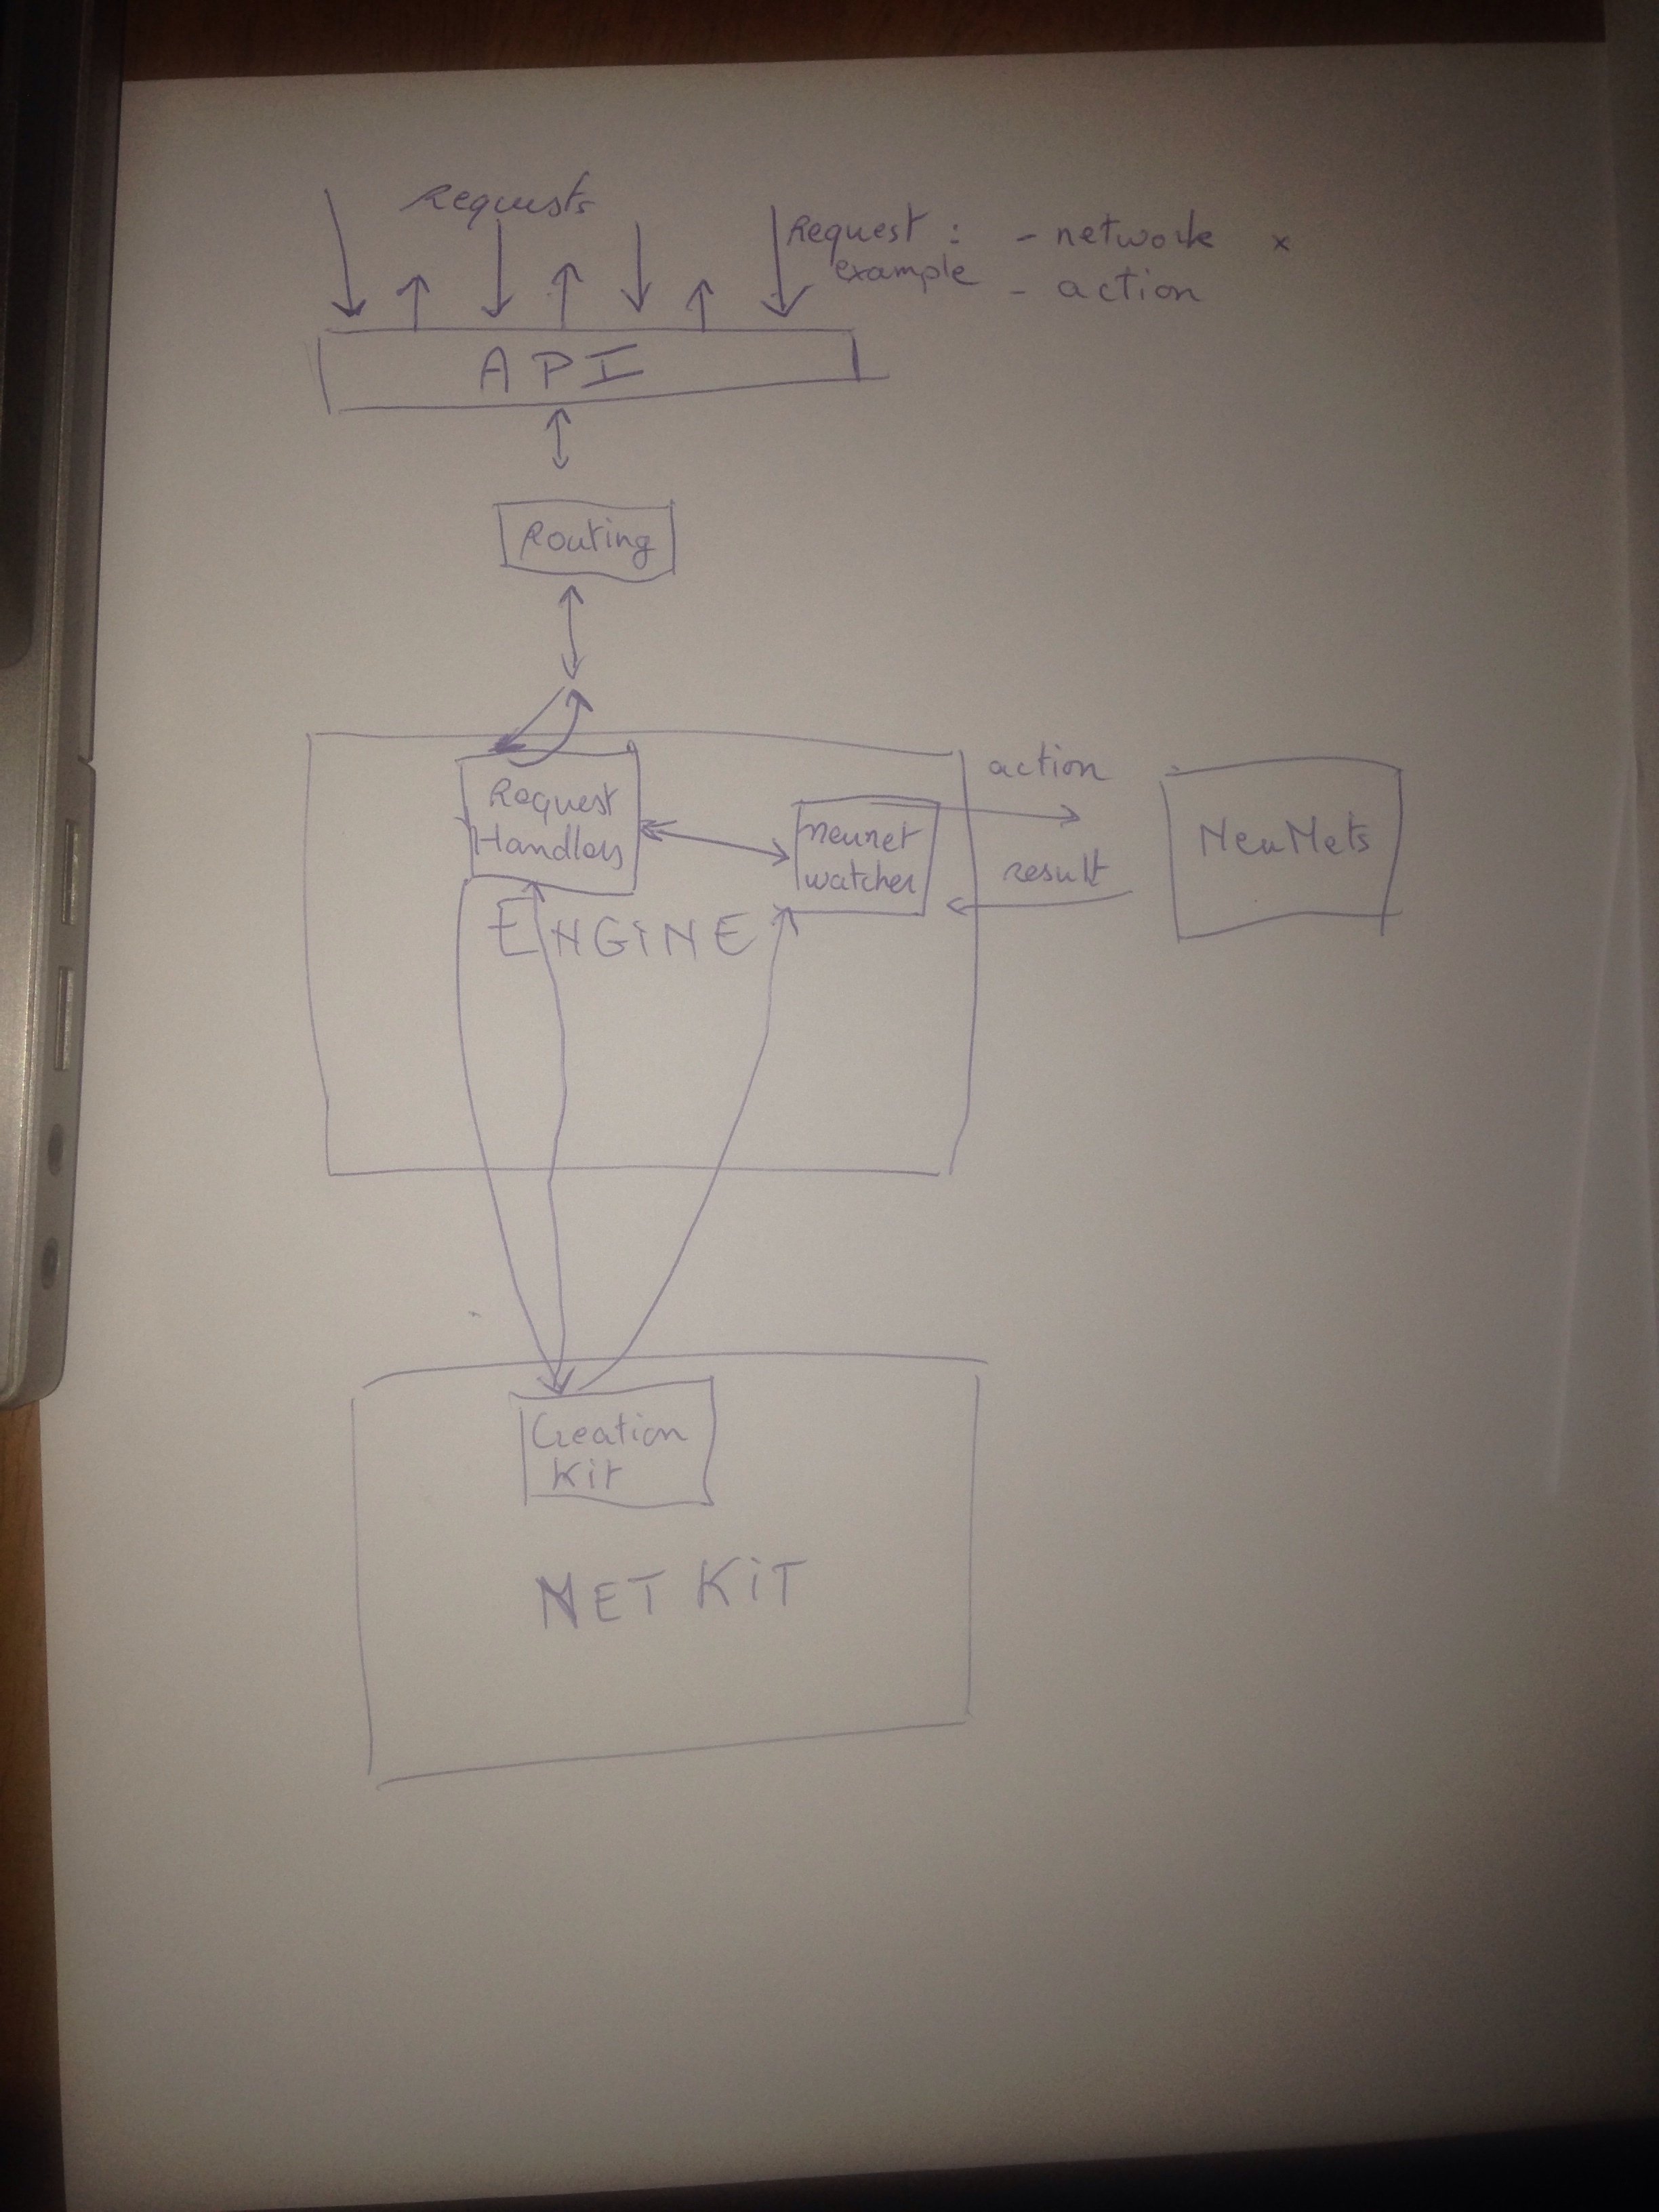 Requests
Request : - network x
example - action
API
Routing
Request
Handlers
neunet
watcher
action
result
NeuNets
ENGINE
Creation
Kit
NET KIT